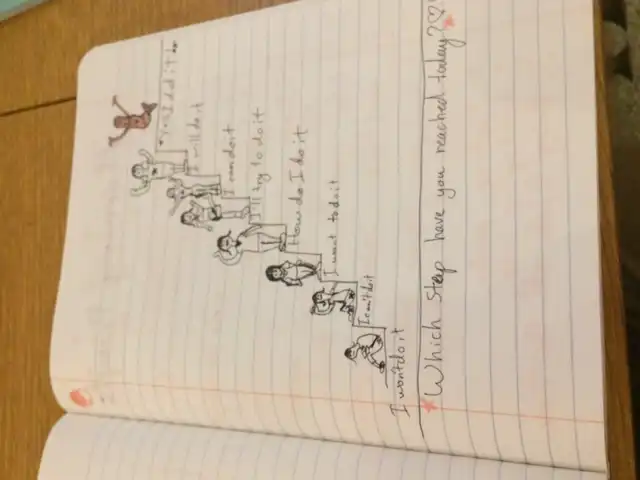 Yes I did it
I will do it
I can do it
I'll try to do it
How do I do it
I want to do it
I can't do it
I won't do it
Which step have you reached today?